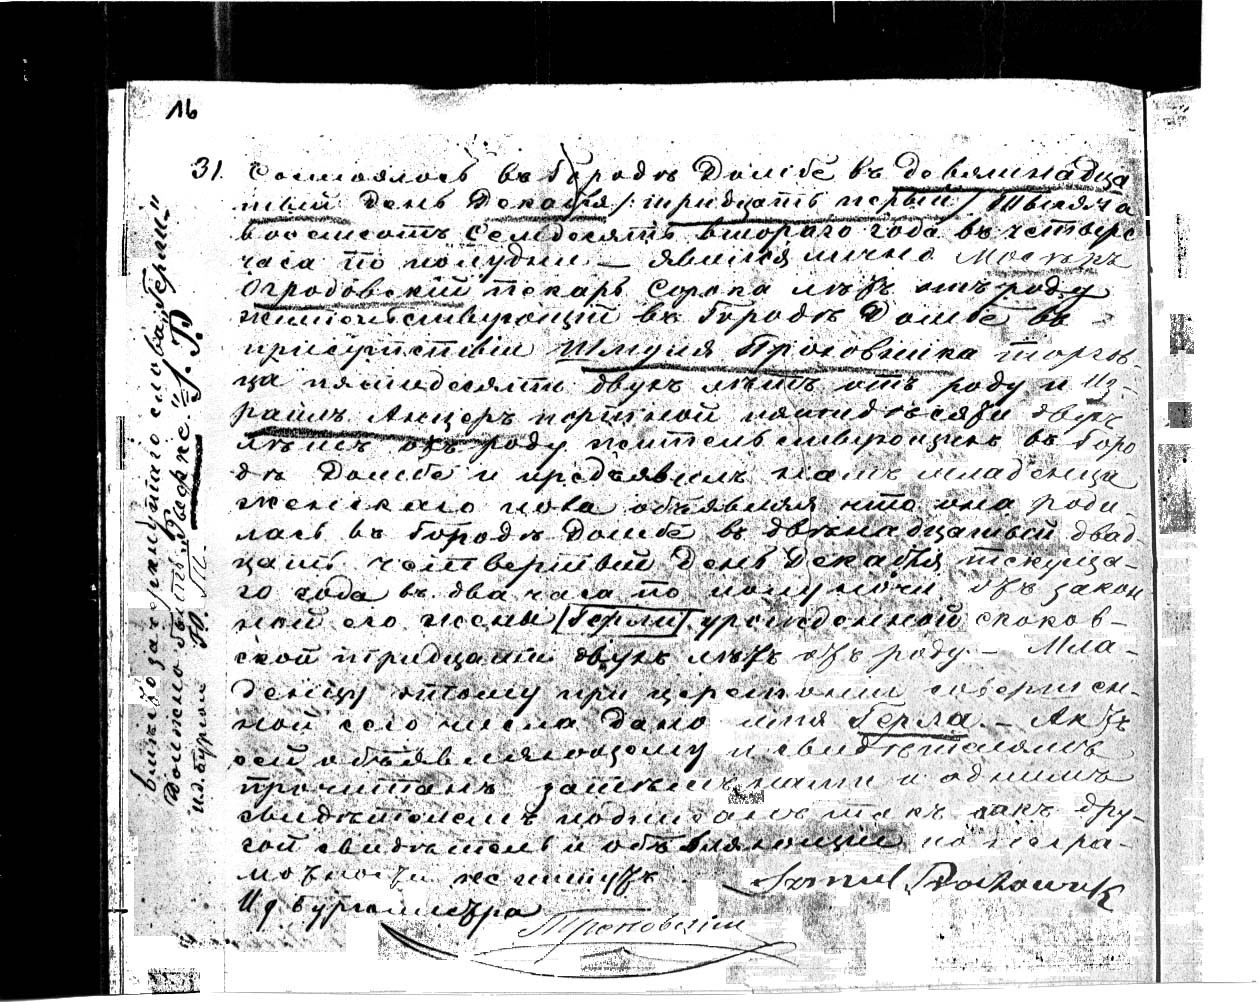 16
31. Состоялось въ Городѣ Домбе въ девятнадца
тый день Декабря /: тридцать первый / тысяча
восемсотъ Семдесятъ втораго года въ четверо
часа по полудни — явился лично Мосекъ
Огродовский пекарь Сорока лѣтъ отъ роду
жительствующий въ Городѣ Домбе въ
присутствіи Шмуля Проховника торгов-
ца пятидесяти двухъ лѣтъ отъ роду и Из-
раиль Анцеръ портной пятидѣсяти двухъ
лѣтъ отъ роду жительствующихъ въ Горо
дѣ Домбе и предъявилъ намъ младенца
женскаго пола объявляя что она роди-
лась въ Городѣ Домбе въ двѣнадцатый двад-
цать четвертый день Декабря текуща-
го года въ два часа по полуночи отъ закон
ной его жены Герли урожденной сконов-
ской тридцати двухъ лѣтъ отъ роду — Мла-
денцу этому при церемоніи совершен-
ной сего числа дано имя Герла — Актъ
сей объявляющему и свидѣтелямъ
прочитанъ затѣмъ нами и однимъ
свидѣтелемъ подписанъ такъ какъ дру-
гой свидѣтель и объявляющій по негра-
мотности не пишутъ
Szmul Prochownik
И д бургомистра
вмѣсто зачеркнутаго слова „Герли"
Должно быть
И.д. бургом